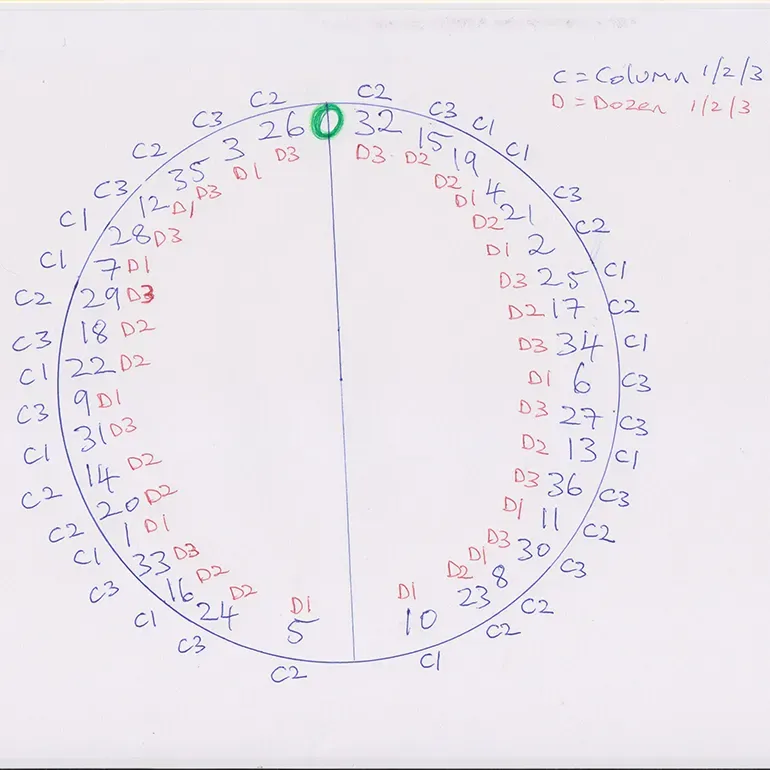 C = Column 1/2/3
D = Dozen 1/2/3
0
C2 32 D3
C3 15 D2
C1 19 D2
C1 4 D1
C3 21 D2
C2 2 D1
C1 25 D3
C2 17 D2
C1 34 D3
C3 6 D1
C3 27 D3
C1 13 D2
C3 36 D3
C2 11 D1
C3 30 D3
C2 8 D1
C2 23 D2
C1 10 D1
C2 5 D1
C3 24 D2
C1 16 D2
C3 33 D3
C1 1 D1
C2 20 D2
C2 14 D2
C1 31 D3
C3 9 D1
C1 22 D2
C3 18 D2
C2 29 D3
C1 7 D1
C1 28 D3
C3 12 D1
C2 35 D3
C3 3 D1
C2 26 D3